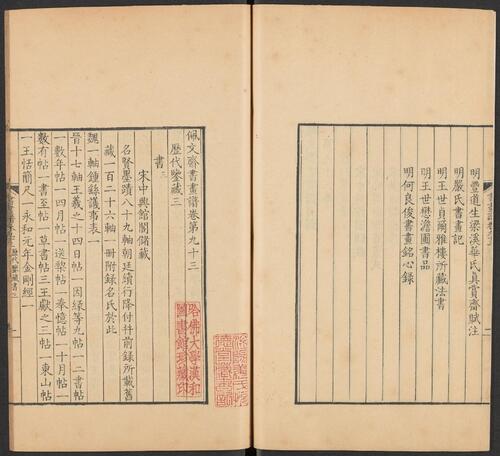 明豐道生梁溪華氏真賞齋賦注
明嚴氏書畫記
明王世貞爾雅樓所藏法書
明王世懋澹圃書品
明何良俊書畫銘心錄
佩文齋書畫譜卷第九十三
歷代鑒藏三
書三
宋中興館閣儲藏
名賢墨蹟八十九軸朝廷續行降付幷前錄所載舊
藏一百二十六軸一冊附錄名氏於此
魏一軸鍾繇議事表一
晉十七軸王羲之十四日帖一因緣等九帖一二書帖
一數年帖一四月帖一送棃帖一奉憶帖一十月帖一
數有帖一書至帖一草書帖三王獻之三帖一東山帖
一王恬簡尺一永和元年金剛經一
哈佛大學漢和
圖書館珍藏印